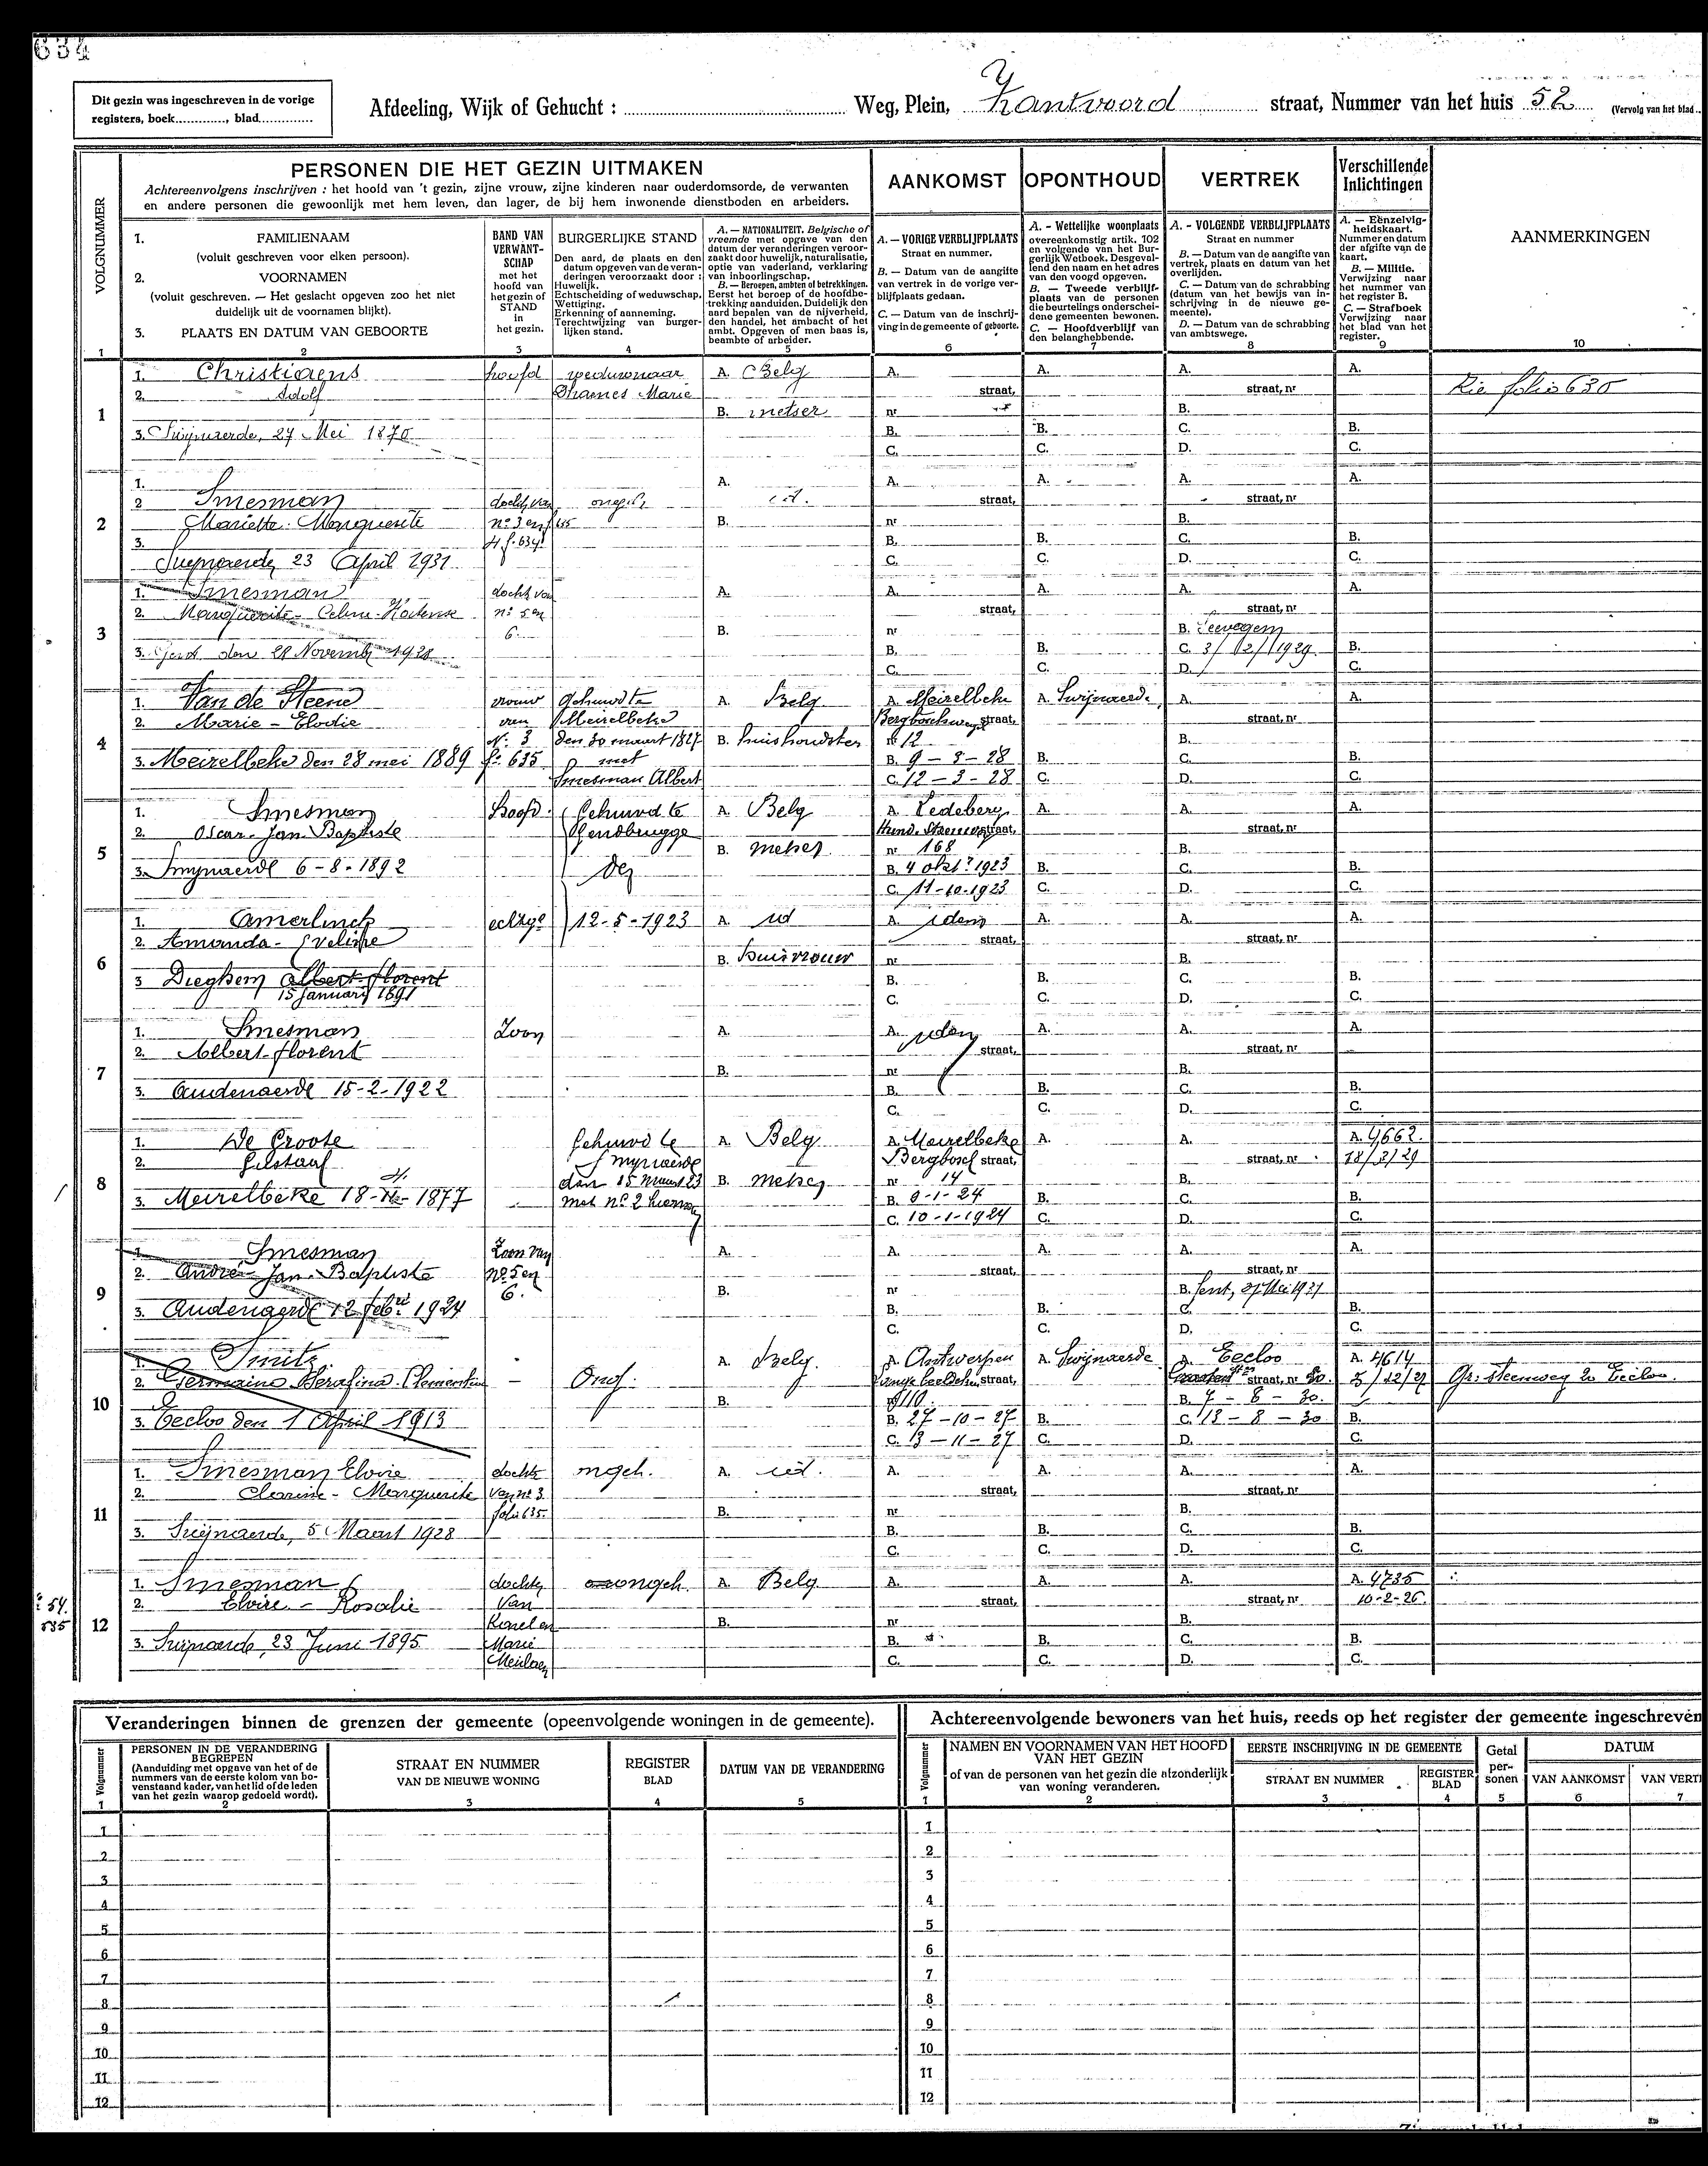 634
Dit gezin was ingeschreven in de vorige
registers, boek............, blad............
Afdeeling, Wijk of Gehucht : Weg, Plein, Zantvoord straat, Nummer van het huis 52 (Vervolg van het blad
PERSONEN DIE HET GEZIN UITMAKEN
Achtereenvolgens inschrijven : het hoofd van 't gezin, zijne vrouw, zijne kinderen naar ouderdomsorde, de verwanten
en andere personen die gewoonlijk met hem leven, dan lager, de bij hem inwonende dienstboden en arbeiders.
AANKOMST
OPONTHOUD
VERTREK
Verschillende
Inlichtingen
VOLGNUMMER
1.
FAMILIENAAM
(voluit geschreven voor elken persoon).
2.
VOORNAMEN
(voluit geschreven. — Het geslacht opgeven zoo het niet
duidelijk uit de voornamen blijkt).
3.
PLAATS EN DATUM VAN GEBOORTE
BAND VAN
VERWANT-
SCHAP
met het
hoofd van
het gezin of
STAND
in
het gezin.
BURGERLIJKE STAND
Den aard, de plaats en den
datum opgeven van de veran-
deringen veroorzaakt door :
Huwelijk.
Echtscheiding of weduwschap.
Wettiging.
Erkenning of aanneming.
Terechtwijzing van burger-
lijken stand.
A. — NATIONALITEIT. Belgische of
vreemde met opgave van den
datum der veranderingen veroor-
zaakt door huwelijk, naturalisatie,
optie van vaderland, verklaring
van inboorlingschap.
B. — Beroepen, ambten of betrekkingen.
Eerst het beroep of de hoofdbe-
trekking aanduiden. Duidelijk den
aard bepalen van de nijverheid,
den handel, het ambacht of het
ambt. Opgeven of men baas is,
beambte of arbeider.
A. — VORIGE VERBLIJFPLAATS
Straat en nummer.
B. — Datum van de aangifte
van vertrek in de vorige ver-
blijfplaats gedaan.
C. — Datum van de inschrij-
ving in de gemeente of geboorte.
A. - Wettelijke woonplaats
overeenkomstig artik. 102
en volgende van het Bur-
gerlijk Wetboek. Desgeval-
lend den naam en het adres
van den voogd opgeven.
B. — Tweede verblijf-
plaats van de personen
die beurtelings onderschei-
dene gemeenten bewonen.
C. — Hoofdverblijf van
den belanghebbende.
A. - VOLGENDE VERBLIJFPLAATS
Straat en nummer
B. — Datum van de aangifte van
vertrek, plaats en datum van het
overlijden.
C. — Datum van de schrabbing
(datum van het bewijs van in-
schrijving in de nieuwe ge-
meente).
D. — Datum van de schrabbing
van ambtswege.
A. — Eenzelvig-
heidskaart.
Nummer en datum
der afgifte van de
kaart.
B. — Militie.
Verwijzing naar
het nummer van
het register B.
C. — Strafboek
Verwijzing naar
het blad van het
register.
AANMERKINGEN
1 2 3 4 5 6 7 8 9 10
1
1. Christiaens hoofd weduwnaar A. Belg A. A. A. A.
2. Adolf Marie straat, straat, nr Zie folio 635
B. metser nr B.
3. Swijnaerde, 27 Mei 1870 B. B. C. B.
C. C. D. C.
2
1. A. A. A. A. A.
2 Smesman docht van ongeh. id. straat, straat, nr
Mariette - Marguerite n° 3 en f 635 B. nr B.
3. 4 f. 634 B. B. C. B.
Swynaerde 23 April 1931 C. C. D. C.
3
1. Smesman docht van A. A. A. A. A.
2. Marguerite - Celine - Hortense n° 5 en straat, straat, nr
6. B. nr B.
3. Gent den 28 November 1928 B. B. C. 3/12/1929 B.
C. C. D. C.
4
1. Van de Steene vrouw Gehuwd te A. Belg A. Meirelbeke A. Swijnaerde A. A.
2. Marie - Elodie van Meirelbeke straat, straat, nr
N: 3 den 30 maart 1927 B. huishoudster nr 12 B.
3. Meirelbeke den 28 mei 1889 f° 635 met B. 9 - 3 - 28 B. C. B.
Smesman Albert C. 12 - 3 - 28 C. D. C.
5
1. Smesman Hoofd. Gehuwd te A. Belg A. Ledeberg A. A. A.
2. Oscar - Jan - Baptiste Gendbrugge straat, straat, nr
B. metser nr 168 B.
3. Swynaerde 6 - 8 - 1892 den B. 4 okt. 1923 B. C. B.
C. 11-10-1923 C. D. C.
6
1. Camerlinck echtge 12-5-1923 A. id A. idem A. A. A.
2. Amanda - Eveline straat, straat, nr
B. huisvrouw nr B.
3 Dieghem Albert florent B. B. C. B.
15 January 1891 C. C. D. C.
7
1. Smesman Zoon A. A. idem A. A. A.
2. Albert - florent straat, straat, nr
B. nr B.
3. Audenaerde 15-2-1922 B. B. C. B.
C. C. D. C.
8
1. De Groote Gehuwd te A. Belg A. Meirelbeke A. A. A. 4662.
2. Gustaaf Swynaerde Bergbosch straat, straat, nr 18/2/29
den 15 maart 23 B. metser nr 14 B.
3. Meirelbeke 18- -1877 met n° 2 hiervan B. 9-1-24 B. C. B.
C. 10-1-1924 C. D. C.
9
1. Smesman Zoon van A. A. A. A. A.
2. André - Jan - Baptiste n° 5 en straat, straat, nr
6. B. nr B. Gent, 27 Mei 1931
3. Audenaerde 12 febri 1924 B. B. C. B.
C. C. D. C.
10
1. Smitz - A. Belg. A. Antwerpen A. Swijnaerde A. Eecloo A. 4614
2. Germaine Serafina Clementine — Ong. straat, straat, nr 20. 5/12/27 Gr: steenweg 20 Eecloo.
B. nr 110. B. 7 - 8 - 30.
3. Eecloo den 1 April 1913 B. 27 - 10 - 27 B. C. 13 - 8 - 30 B.
C. 13 - 11 - 27 C. D. C.
11
1. Smesman Elvire dochte ongeh. A. id. A. A. A. A.
2. Clarisse - Marguerite van n° 3. straat, straat, nr
folio 635. B. nr B.
3. Swijnaerde, 5 Maart 1928 B. B. C. B.
C. C. D. C.
12
1. Smesman dochter ongeh. A. Belg A. A. A. A. 4735
2. Elvire - Rosalie van straat, straat, nr 10-2-26.
Karel en B. nr B.
3. Swijnaerde, 23 Juni 1895 Marie B. B. C. B.
C. C. D. C.
54.
535
Veranderingen binnen de grenzen der gemeente (opeenvolgende woningen in de gemeente).
Volgnummer
PERSONEN IN DE VERANDERING
BEGREPEN
(Aanduiding met opgave van het of de
nummers van de eerste kolom van bo-
venstaand kader, van het lid of de leden
van het gezin waarop gedoeld wordt).
STRAAT EN NUMMER
VAN DE NIEUWE WONING
REGISTER
BLAD
DATUM VAN DE VERANDERING
1 2 3 4 5
1
2
3
4
5
6
7
8
9
10
11
12
Achtereenvolgende bewoners van het huis, reeds op het register der gemeente ingeschreven
Volgnummer
NAMEN EN VOORNAMEN VAN HET HOOFD
VAN HET GEZIN
of van de personen van het gezin die afzonderlijk
van woning veranderen.
EERSTE INSCHRIJVING IN DE GEMEENTE
STRAAT EN NUMMER
REGISTER
BLAD
Getal
per-
sonen
DATUM
VAN AANKOMST
VAN VERT
1 2 3 4 5 6 7
1
2
3
4
5
6
7
8
9
10
11
12